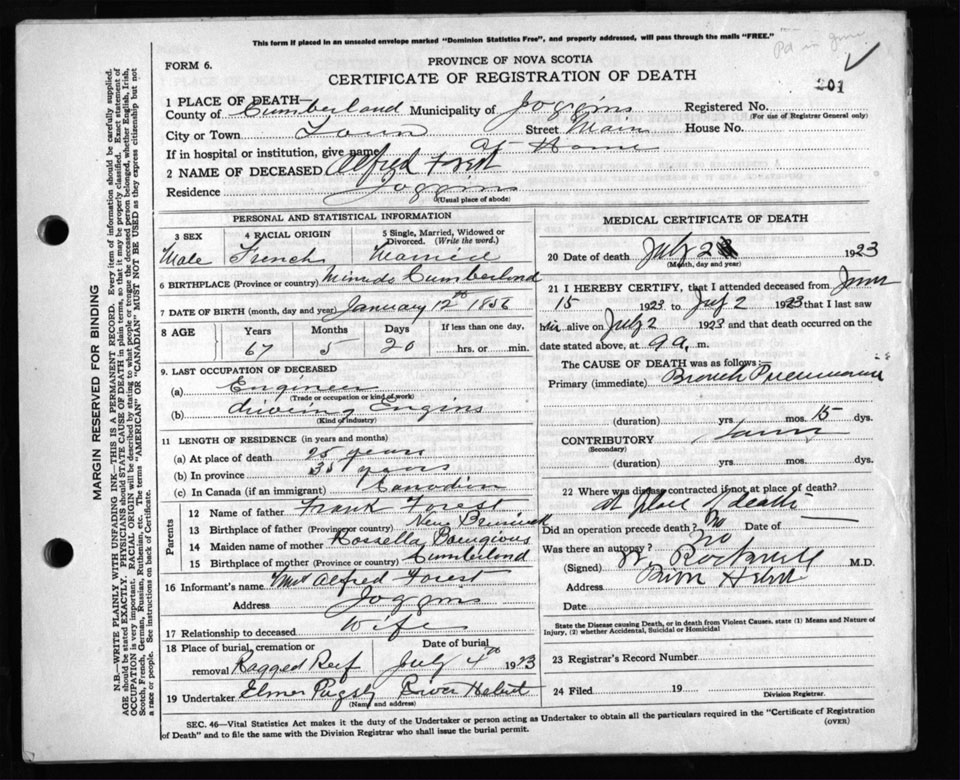 This form if placed in an unsealed envelope marked "Dominion Statistics Free", and properly addressed, will pass through the mails "FREE."
FORM 6.
PROVINCE OF NOVA SCOTIA
CERTIFICATE OF REGISTRATION OF DEATH
201
1 PLACE OF DEATH—
County of Cumberland Municipality of Joggins Registered No.
(For use of Registrar General only)
City or Town Town Street Main House No.
If in hospital or institution, give name At Home
2 NAME OF DECEASED Alfred Forest
Residence Joggins
(Usual place of abode)
PERSONAL AND STATISTICAL INFORMATION
3 SEX
Male
4 RACIAL ORIGIN
French
5 Single, Married, Widowed or Divorced. (Write the word.)
Married
6 BIRTHPLACE (Province or country) Minudo Cumberlond
7 DATE OF BIRTH (month, day and year) January 12th 1856
8 AGE Years Months Days If less than one day,
67 5 20 hrs. or min.
9. LAST OCCUPATION OF DECEASED
(a) Engineer
(Trade or occupation or kind of work)
(b) driving Engins
(Kind of industry)
11 LENGTH OF RESIDENCE (in years and months)
(a) At place of death 25 years
(b) In province 35 years
(c) In Canada (if an immigrant) Canadin
Parents
12 Name of father Frank Forest
13 Birthplace of father (Province or country) New Brunswick
14 Maiden name of mother Rossella
15 Birthplace of mother (Province or country) Cumberlond
16 Informant's name Mrs Alfred Forest
Address Joggins
17 Relationship to deceased Wife
18 Place of burial, cremation or removal Ragged Reef
Date of burial July 4th 1923
19 Undertaker Elmer Pugsly River Hebert
(Name and address)
MEDICAL CERTIFICATE OF DEATH
20 Date of death July 2 1923
(Month, day and year)
21 I HEREBY CERTIFY, that I attended deceased from June
15 1923 to July 2 1923 that I last saw
him alive on July 2 1923 and that death occurred on the
date stated above, at 9 a. m.
The CAUSE OF DEATH was as follows:—
Primary (immediate) Bronch Pneumonia
(duration) yrs. mos. 15 dys.
CONTRIBUTORY
(Secondary)
(duration) yrs. mos. dys.
22 Where was disease contracted if not at place of death?
at place of death
Did an operation precede death? No Date of —
Was there an autopsy? No
(Signed) W. Rockwell M.D.
Address River Hebert
Date
State the Disease causing Death, or in death from Violent Causes, state (1) Means and Nature of Injury, (2) whether Accidental, Suicidal or Homicidal
23 Registrar's Record Number
24 Filed 19
Division Registrar.
SEC. 46—Vital Statistics Act makes it the duty of the Undertaker or person acting as Undertaker to obtain all the particulars required in the "Certificate of Registration of Death" and to file the same with the Division Registrar who shall issue the burial permit.
(OVER)
MARGIN RESERVED FOR BINDING
N.B.—WRITE PLAINLY WITH UNFADING INK—THIS IS A PERMANENT RECORD. Every item of information should be carefully supplied.
AGE should be stated EXACTLY. PHYSICIANS should STATE CAUSE OF DEATH in plain terms, so that it may be properly classified. Exact statement of
OCCUPATION is very important. RACIAL ORIGIN will be described by stating to what people or tongue the deceased person belonged, whether English, Irish,
Scotch, French, German, Russian, Ruthenian, etc. The terms "AMERICAN" OR "CANADIAN" MUST NOT BE USED as they express citizenship but not
a race or people. See instructions on back of Certificate.